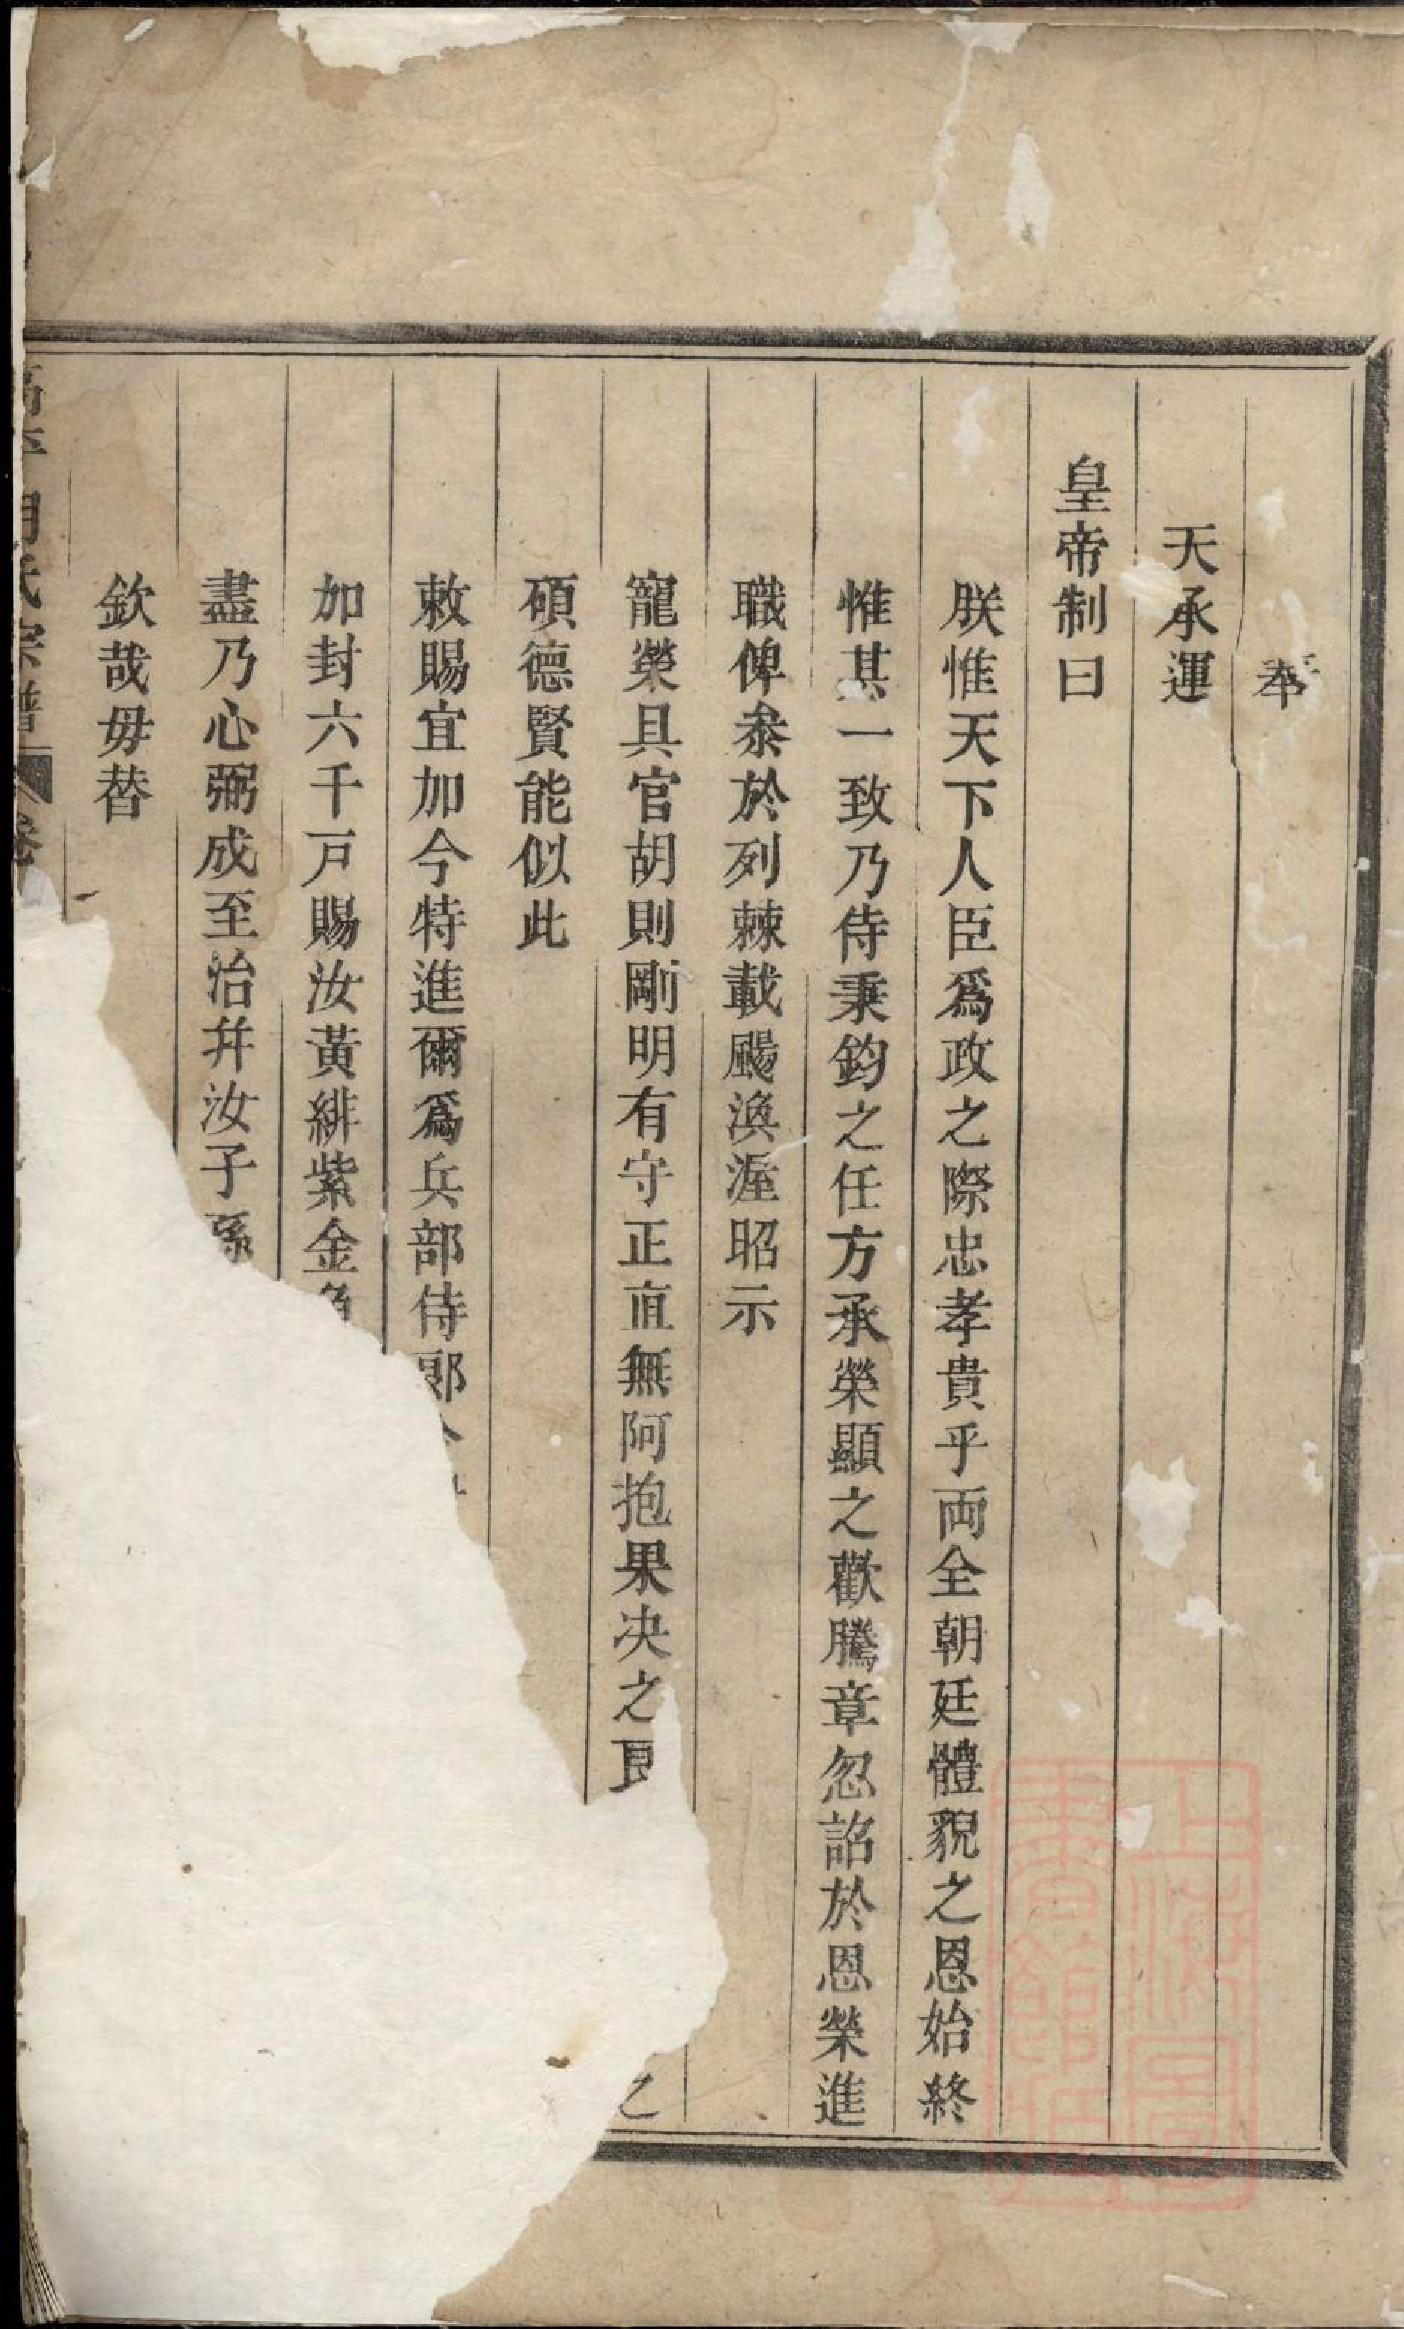 奉
天承運
皇帝制曰
朕惟天下人臣爲政之際忠孝貴乎両全朝廷體貌之恩始終
惟其一致乃侍秉鈞之任方承榮顯之歡騰章忽詔於恩榮進
職俾叅於列棘載颺渙渥昭示
寵榮具官胡則剛明有守正直無阿抱果决之
碩德賢能似此
敕賜宜加今特進爾爲兵部侍郎
加封六千戸賜汝黃緋紫金魚
盡乃心弼成至治并汝子孫
欽哉毋替
胡氏宗譜 卷
上海圖書館藏